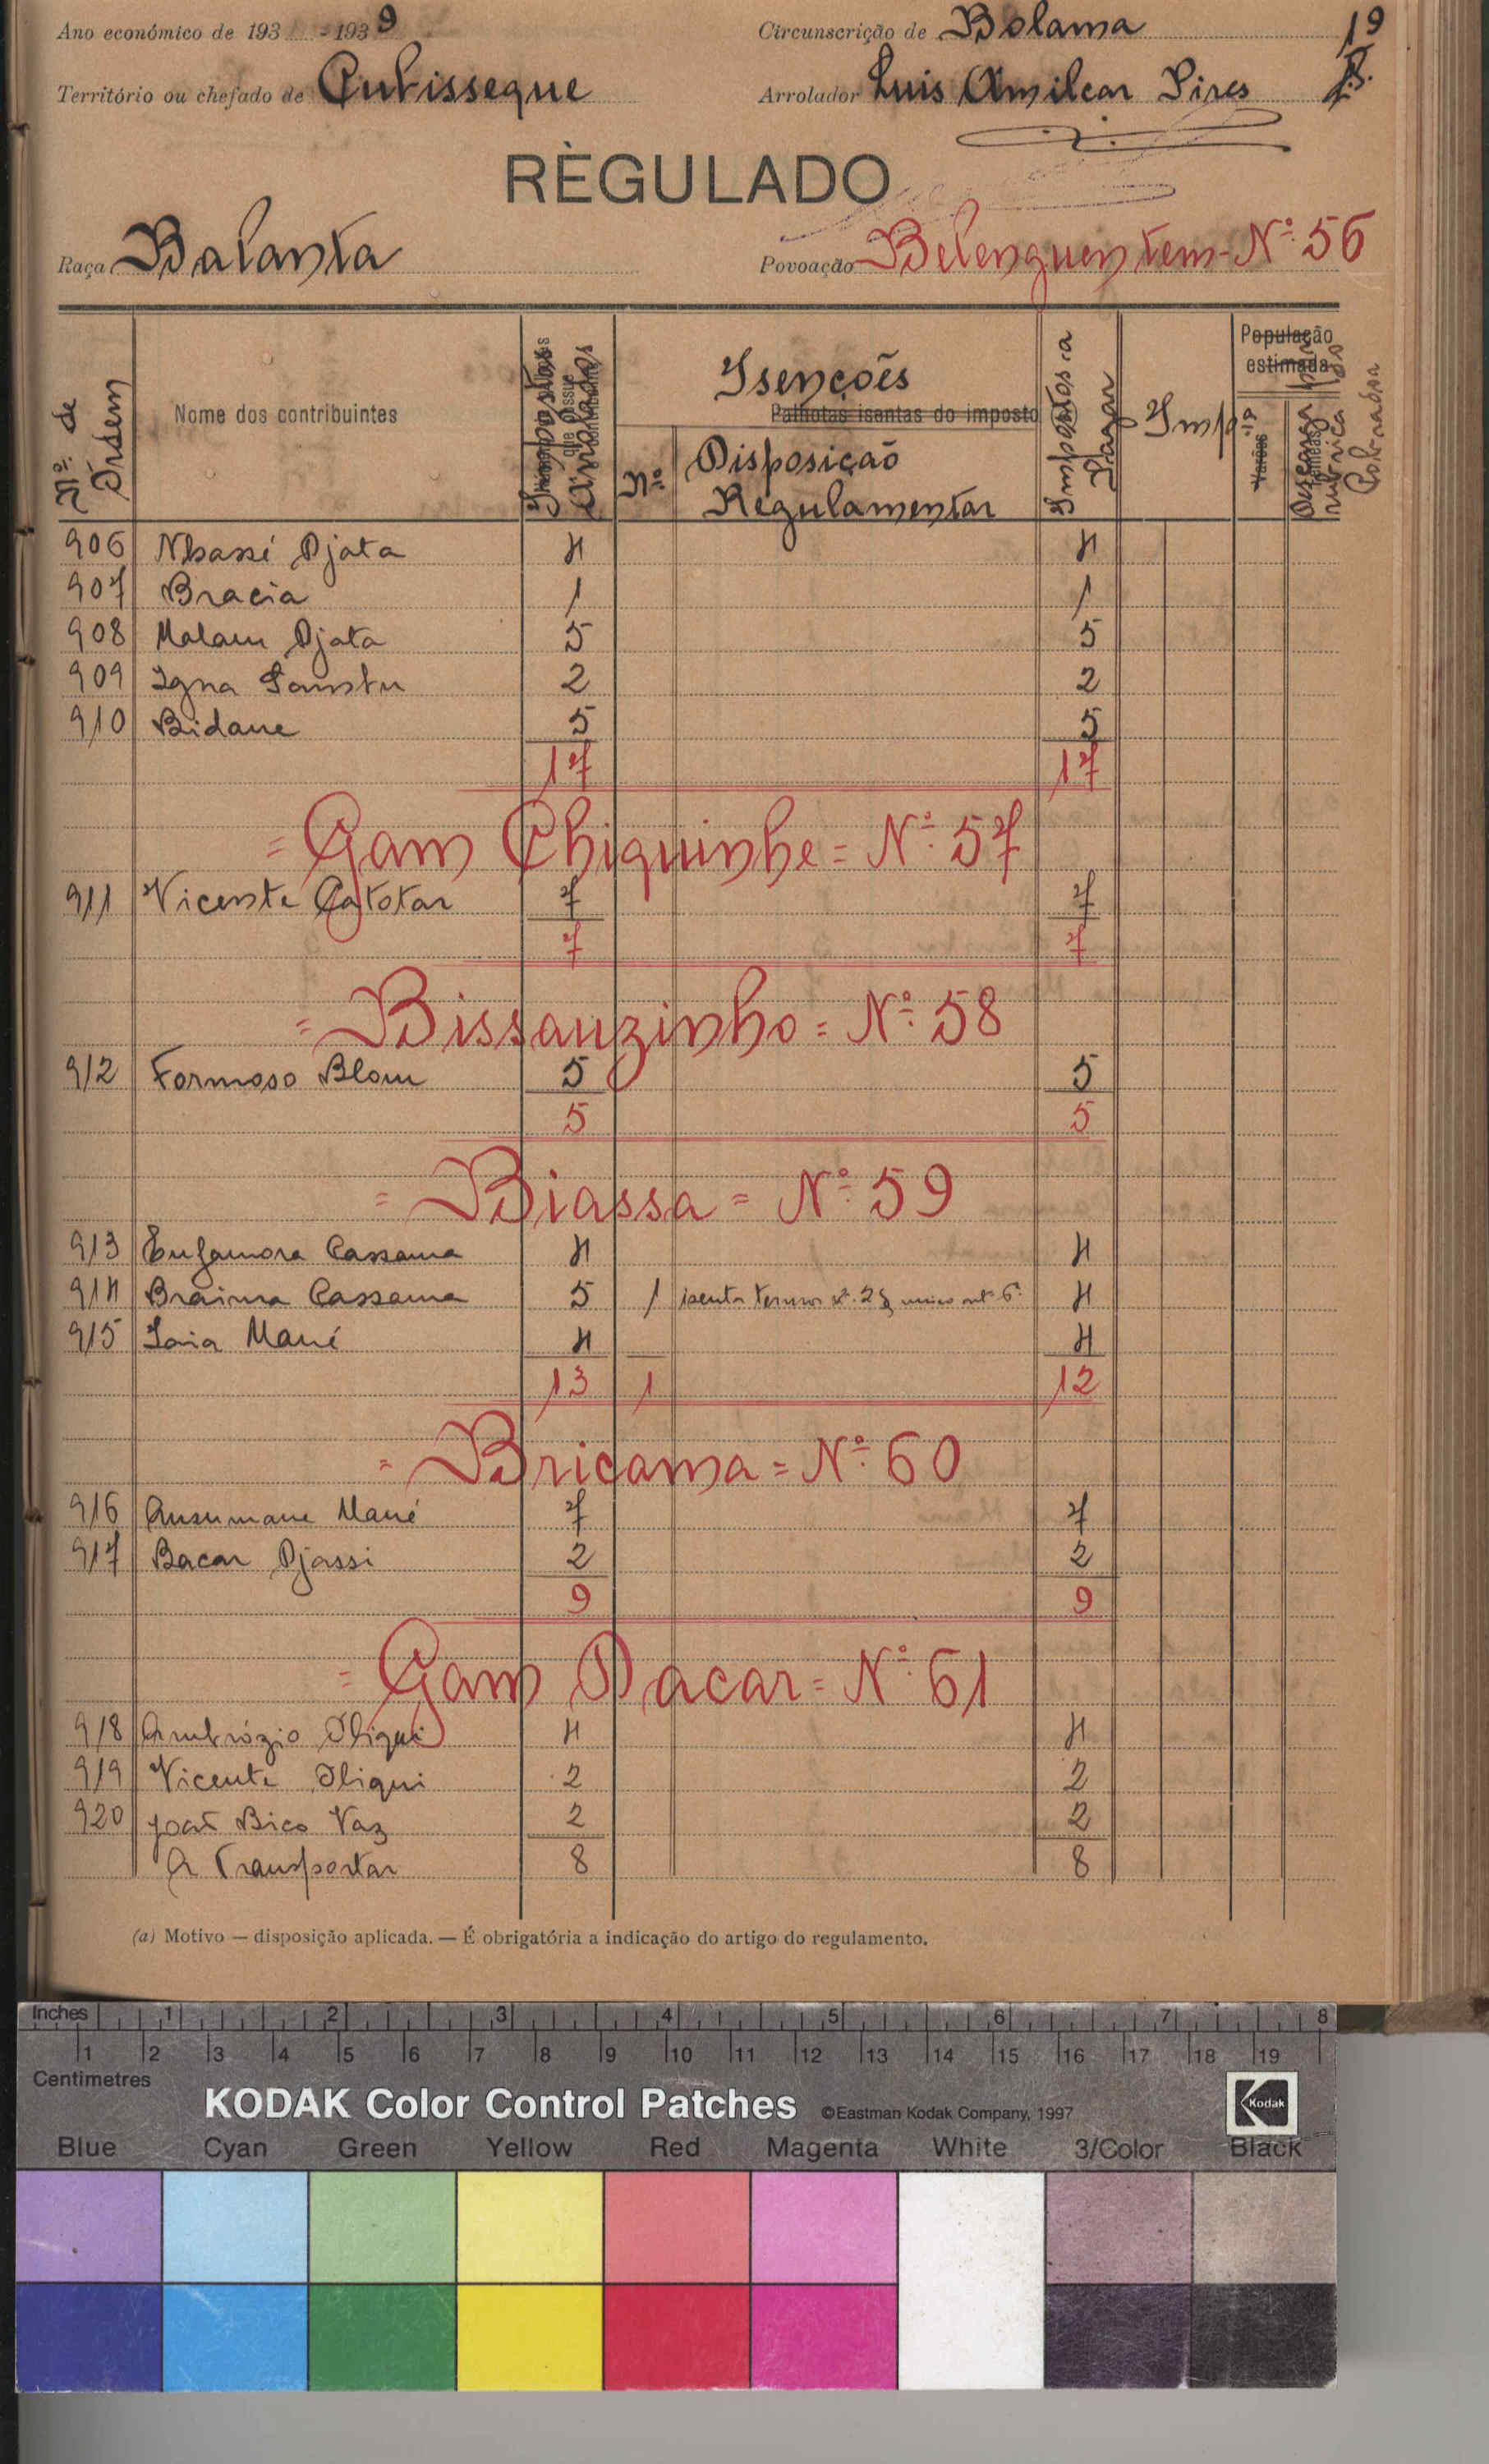 Ano económico de 193 - 1939
Circunscrição de Bolama
19
Território ou chefado de Cubisseque
Arrolador Luis Amilcar Pires
RÈGULADO
Raça Balanta
Povoação Belenguentem - Nº 56
Nº de Ordem
Nome dos contribuintes
Impostos Arrolados
Isenções
Palhotas isentas do imposto
Nº
Disposição
Regulamentar
Impostos a Pagar
Imp
População
estimada
Varões
906 Nbassi Djata 4 4
907 Bracia 1 1
908 Malam Djata 5 5
909 Igna 2 2
910 Bidane 5 5
17 17
= Gam Chiquinhe = Nº 57
911 Vicente Catotar 7 7
7 7
= Bissauzinho = Nº 58
912 Formoso Blom 5 5
5 5
= Biassa = Nº 59
913 Enfamora Cassama 4 4
914 Braima Cassama 5 1 isento termos nº 2 § unico artº 6º 4
915 Mané 4 4
13 1 12
= Bricama = Nº 60
916 Ansumane Mané 7 7
917 Bacar Djassi 2 2
9 9
= Gam Dacar = Nº 61
918 Ambrózio Oliqui 4 4
919 Vicente Oliqui 2 2
920 João Bico Vaz 2 2
A Transportar 8 8
(a) Motivo — disposição aplicada. — É obrigatória a indicação do artigo do regulamento.
Inches 1 2 3 4 5 6 7 8
1 2 3 4 5 6 7 8 9 10 11 12 13 14 15 16 17 18 19
Centimetres
KODAK Color Control Patches ©Eastman Kodak Company, 1997 Kodak
Blue Cyan Green Yellow Red Magenta White 3/Color Black